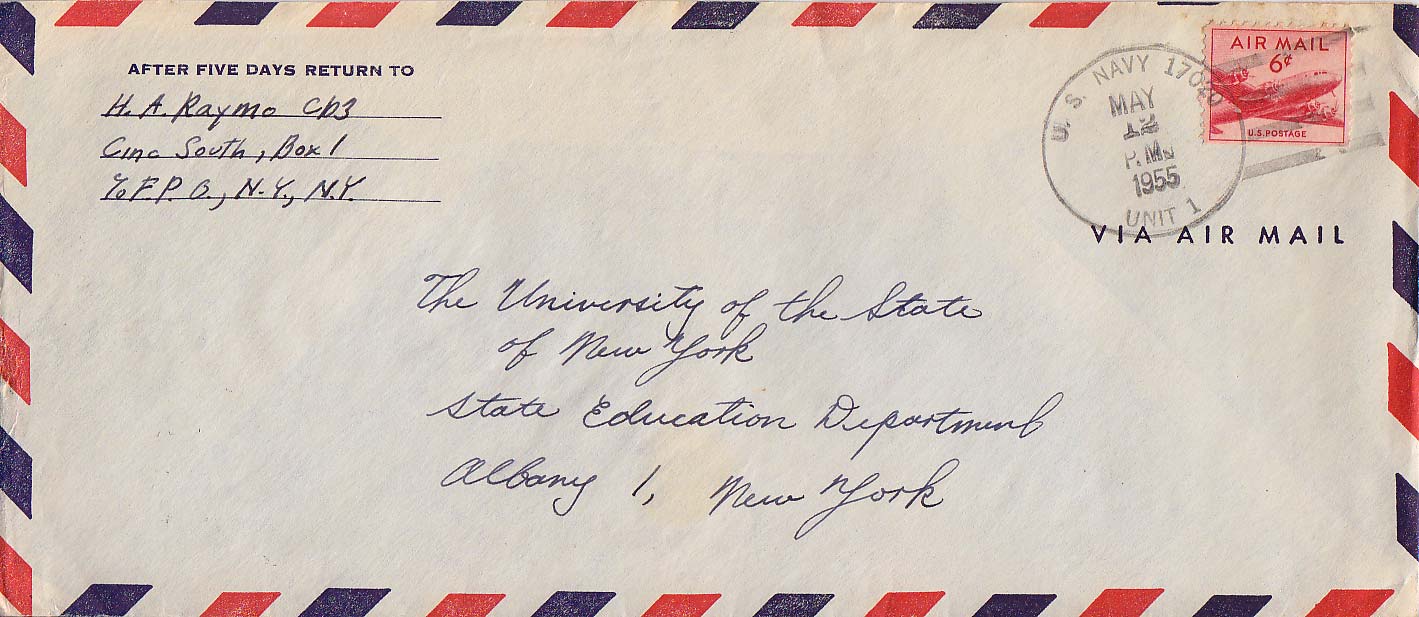 AFTER FIVE DAYS RETURN TO
H. A. Raymo CD3
Cinc South, Box 1
℅ F.P.O., N.Y., N.Y.
AIR MAIL
6¢
U.S. POSTAGE
U. S. NAVY
MAY
12
P.M.
1955
UNIT 1
VIA AIR MAIL
The University of the State
of New York
State Education Department
Albany 1, New York